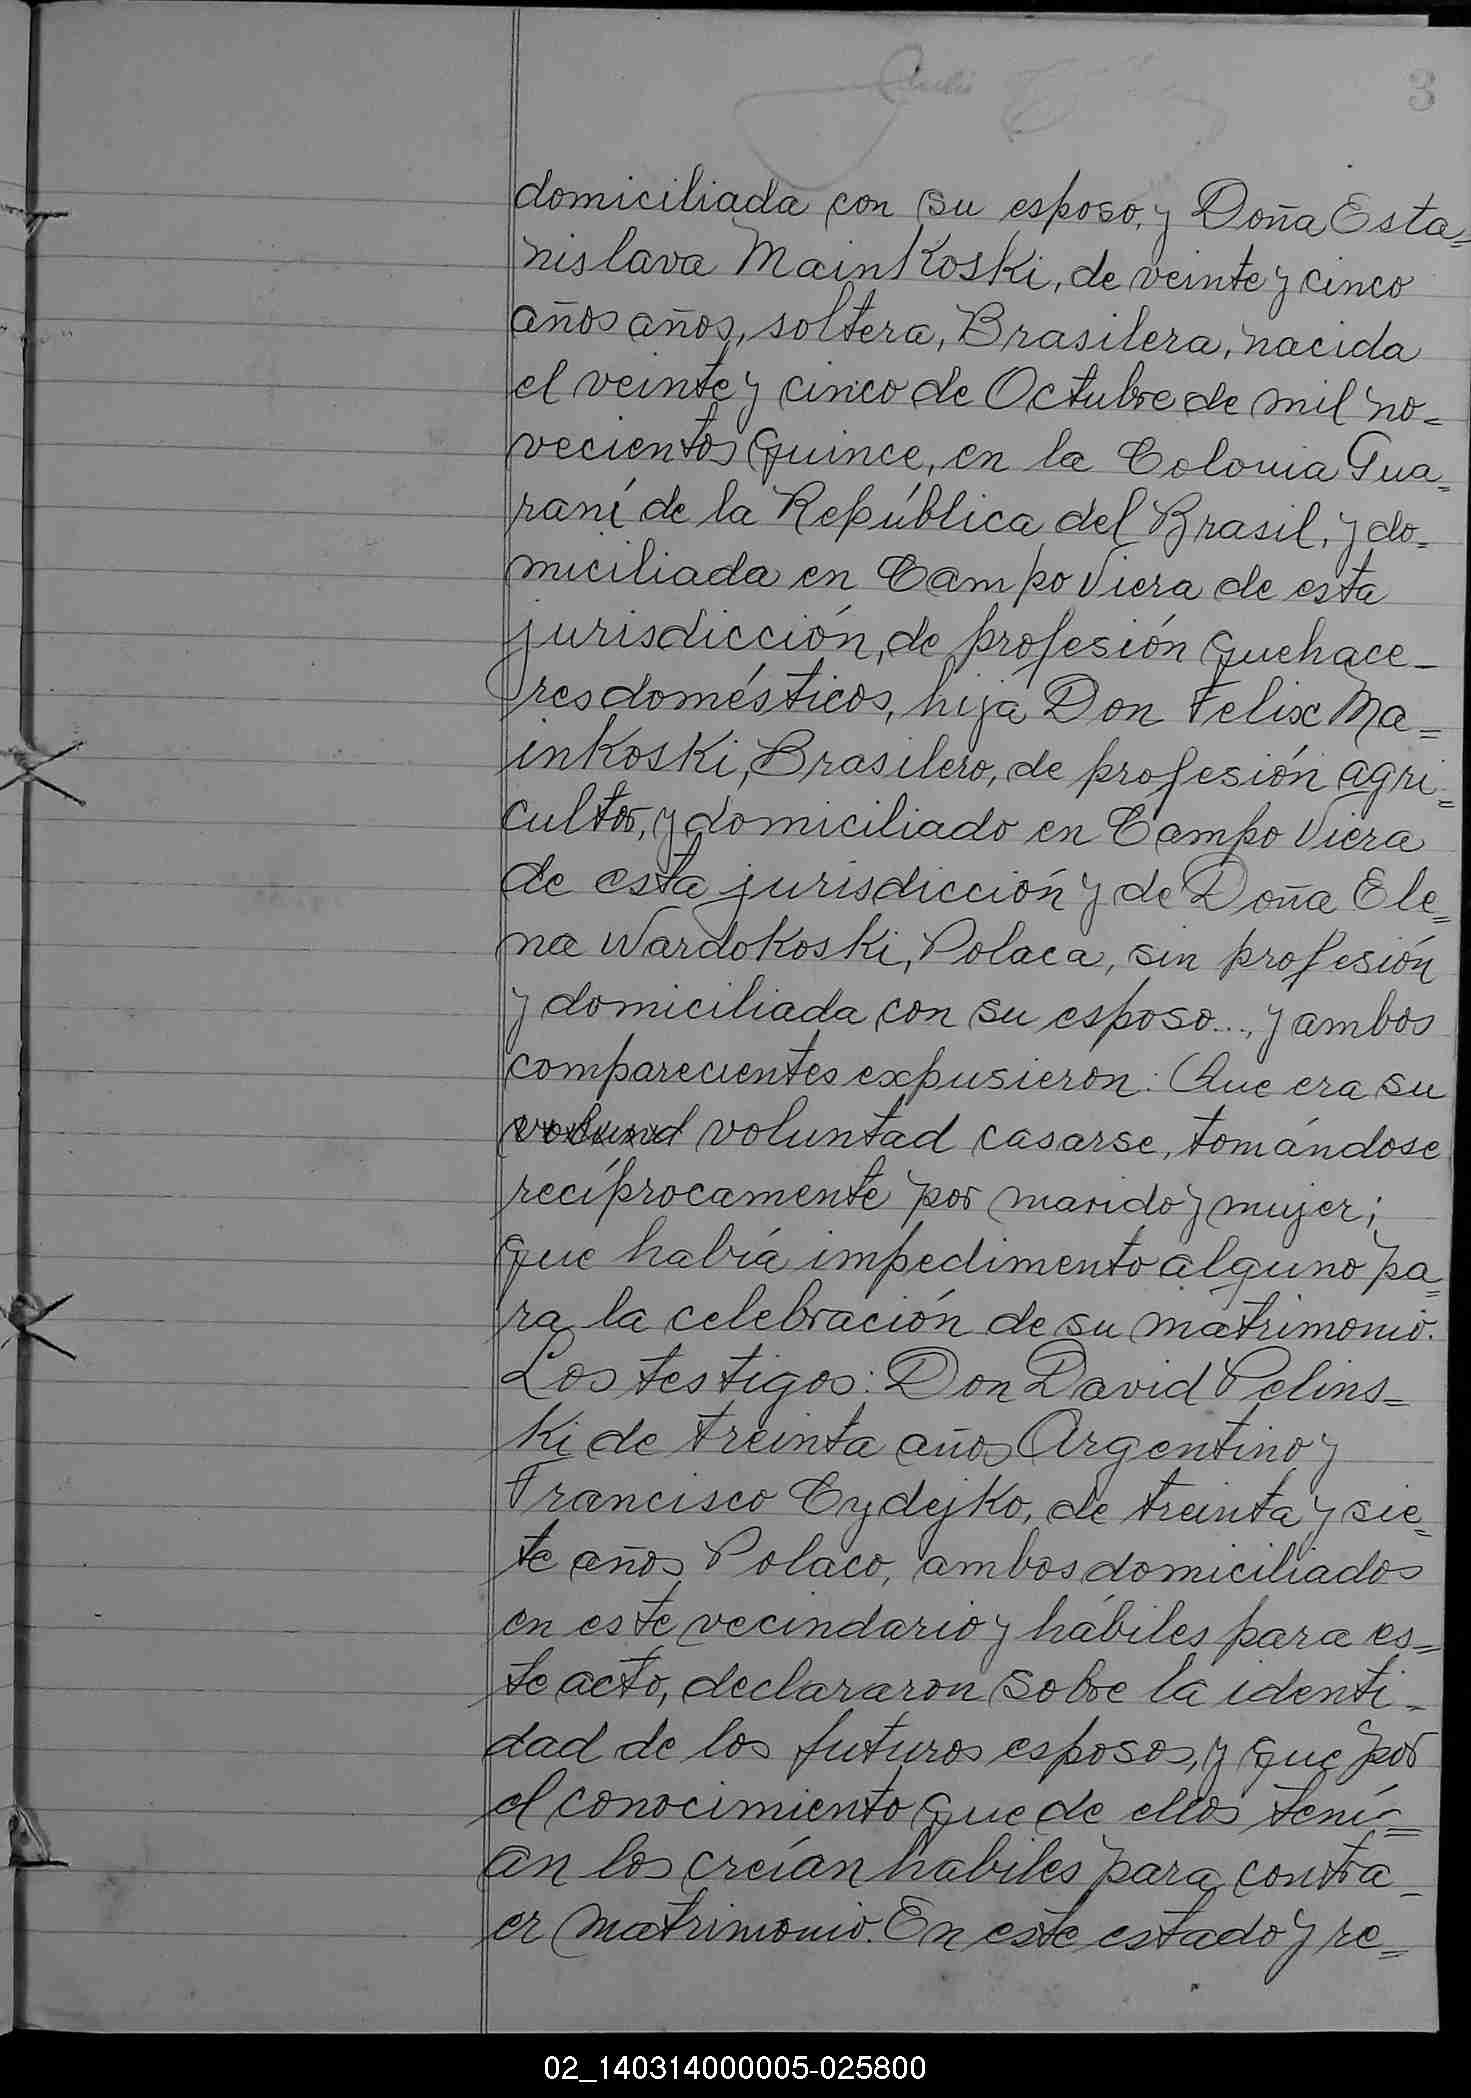 3
domiciliada con su esposo, y Doña Esta=
nislava MainKosKi, de veinte y cinco
años años, soltera, Brasilera, nacida
el veinte y cinco de Octubre de mil no=
vecientos quince, en la Colonia Gua=
raní de la República del Brasil, y do=
miciliada en Campo Viera de esta
jurisdicción, de profesión quehace-
res domésticos, hija Don Felix Ma=
inKosKi, Brasilero, de profesión agri=
cultor, y domiciliado en Campo Viera
de esta jurisdicción y de Doña Ele=
na WardoKosKi, Polaca, sin profesión
y domiciliada con su esposo..., y ambos
comparecientes expusieron: Que era su
volund voluntad casarse, tomándose
recíprocamente por marido y mujer;
que había impedimento alguno pa=
ra la celebración de su matrimonio.
Los testigos: Don David Pelins=
Ki de treinta años Argentino y
Francisco CydejKo, de treinta y sie=
te años Polaco, ambos domiciliados
en este vecindario y hábiles para es=
te acto, declararon sobre la identi=
dad de los futuros esposos, y que por
el conocimiento que de ellos tení=
an los creían habiles para contra=
er matrimonio. En este estado y re=
02_140314000005-025800